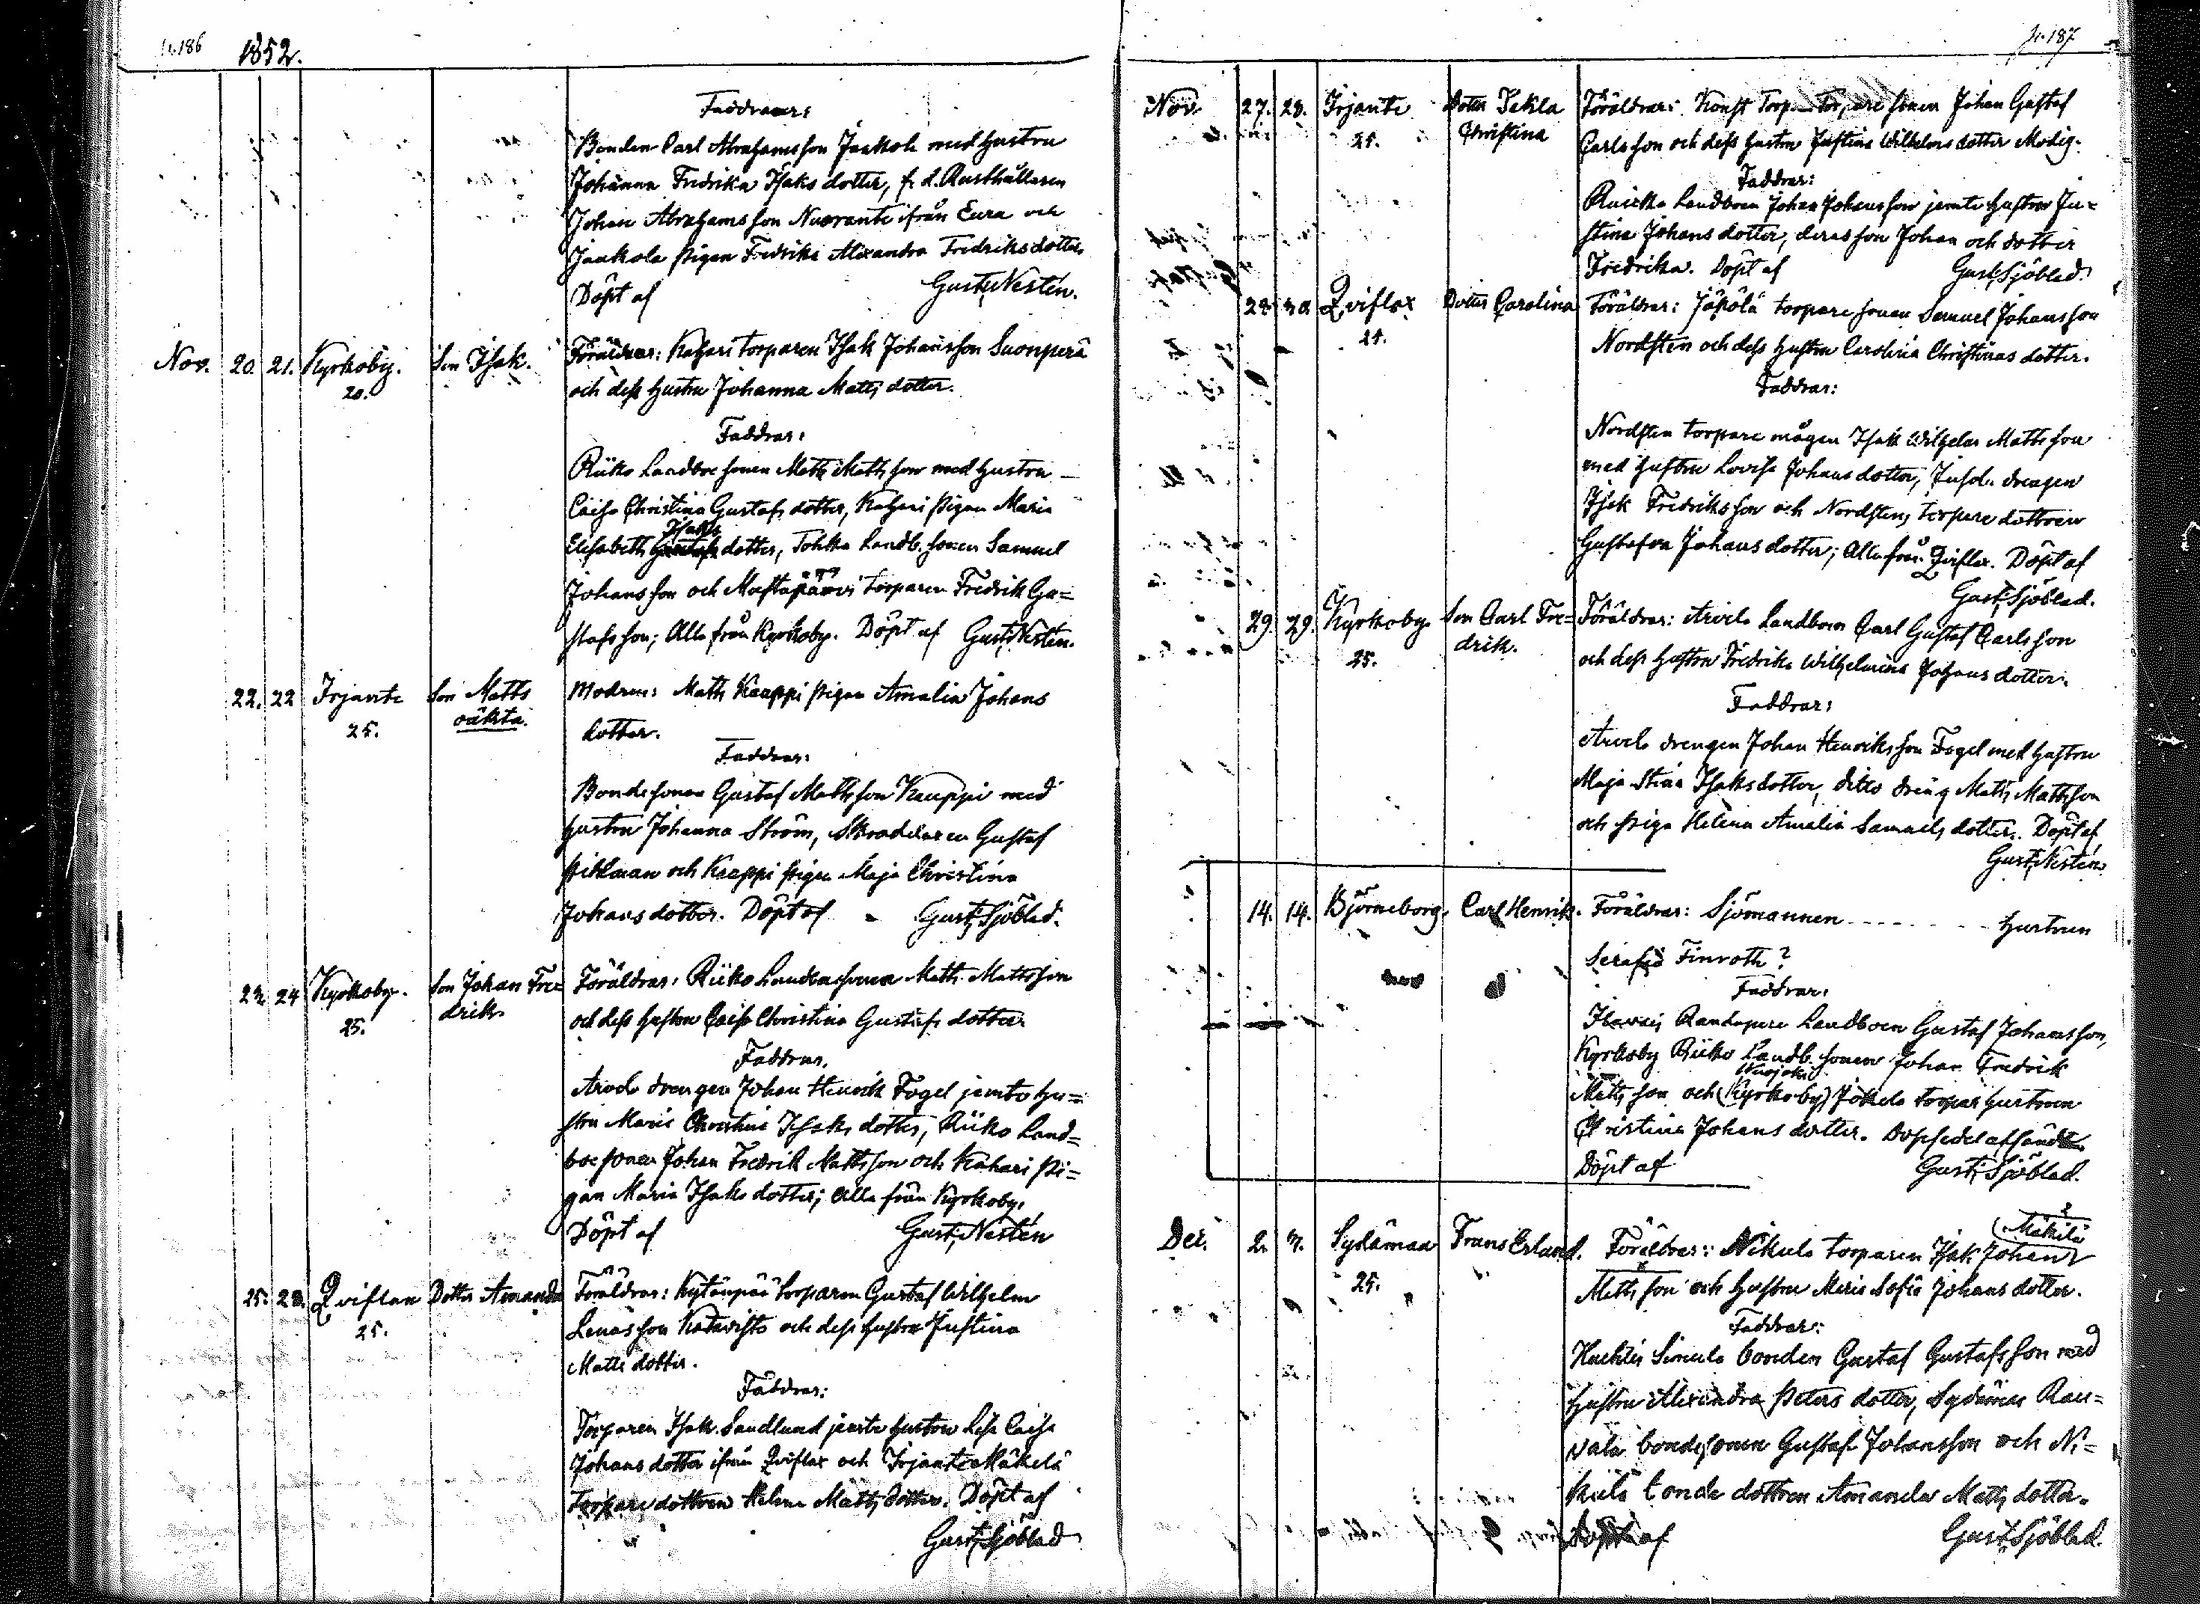 p. 186 1852.
Faddrar:
Bonden Carl Abrahamsson Jaakola med hustru
Johanna Fredrika Isaks dotter, f. d. Rusthållaren
Johan Abrahamsson Nuoranti ifrån Eura och
Jaakola pigan Fredrika Alexandra Fredriksdotter
Döpt af Gust. Nestén.
Nov. 20 21. Kyrkoby. Son Isak. Föräldrar: Kahari torparen Isak Johansson Suonperä
20. och dess hustru Johanna Matts dotter.
Faddrar:
Riiko Landboe sonen Matts Mattsson med hustru
Caisa Christina Gustafs dotter, Kahari pigan Maria
Isaks
Elisabeth Gustafs dotter, Tohka Landb. sonen Samuel
Johansson och torparen Fredrik Gu=
stafsson; Alla från Kyrkoby. Döpt af Gust. Nestén.
22. 22 Irjante Son Matts Modren: Matts Kauppi pigan Amalia Johans
25. oäkta. dotter.
Faddrar:
Bondesonen Gustaf Mattsson Kauppi med
hustru Johanna Ström, Skraddaren Gustaf
Pihlman och Kauppi pigan Maja Christina
Johans dotter. Döpt af Gust. Sjöblad.
23. 24 Kyrkoby. Son Johan Fre= Föräldrar: Riiko Landboesonen Matts Mattsson
25. drik. och dess hustru Caisa Christina Gustafs dotter
Faddrar.
Arvela drengen Johan Henrik Fogel jemte hu=
stru Maria Christina Isaks dotter, Riiko Land=
boe sonen Johan Fredrik Mattsson och Kahari pi=
gan Maria Isaks dotter; alla från Kyrkoby.
Döpt af Gust. Nestén
25. 28. Qviflax Dotter Amanda Föräldrar: Kytänpää torparen Gustaf Wilhelm
25. Lenasson Katavisto och dess hustru Justina
Matts dotter.
Faddrar:
Torparen Isak Sandlund jemte hustru Lisa Caisa
Johans dotter ifrån Qviflax och Irjante Mäkelä
Torpare dottren Helena Matts dotter. Döpt af
Gust. Sjöblad
p. 187
Nov. 27. 28. Irjante Dotter Tekla Föräldrar: Konst Torp. Torpare sonen Johan Gustaf
24. Christina Carlsson och dess hustru Justina Wilhelms dotter Modig.
Faddrar:
Landboen Johan Johansson jemte hustru Ju=
stina Johans dotter, deras son Johan och dotter
Fredrika. Döpt af Gust. Sjöblad.
28. 30. Qviflax Dotter Carolina Föräldrar: torpare sonen Samuel Johansson
24. Nordsten och dess hustru Carolina Christinas dotter.
Faddrar:
Nordsten torpare mågen Isak Wilhelm Mattsson
med hustru Lovisa Johans dotter, drengen
Isak Fredriksson och Nordstens torpare dottren
Gustafva Johans dotter; Alla från Qviflax. Döpt af
Gust. Sjöblad.
29. 29. Kyrkoby Son Carl Fre= Föräldrar: Arvela Landboen Carl Gustaf Carlsson
25. drik. och dess hustru Fredrika Wilhelmina Johans dotter.
Faddrar:
Arvela drengen Johan Henriksson Fogel med hustru
Maja Stina Isaks dotter, ditto dräng Matts Mattsson
och piga Helena Amalia Samuels dotter. Döpt af
Gust. Nestén
14. 14. Björneborg. Carl Henrik. Föräldrar: Sjömannen - - - - - - - hustrun
Serafia Finroth?
Faddrar:
Landboen Gustaf Johansson,
Kyrkoby Riiko Landb. sonen Johan Fredrik
Matts son och (Kyrkoby) Jokela torpar hustrun
Christina Johans dotter. Dopsedel afsändt
Döpt af Gust. Sjöblad.
(Mäkilä
Dec. 2. 3. Sydämaa Frans Erland. Föräldrar: Nikula torparen Isak Johan
25. Matts son och hustru Maria Sofia Johans dotter.
Faddrar:
Simula bonden Gustaf Gustafsson med
hustru Alexandra Peters dotter, Sydämaa Ran=
vala bondesonen Gustaf Johansson och Ni=
kula bonde dottren Amanda Matts dotter.
Döpt af Gust. Sjöblad.